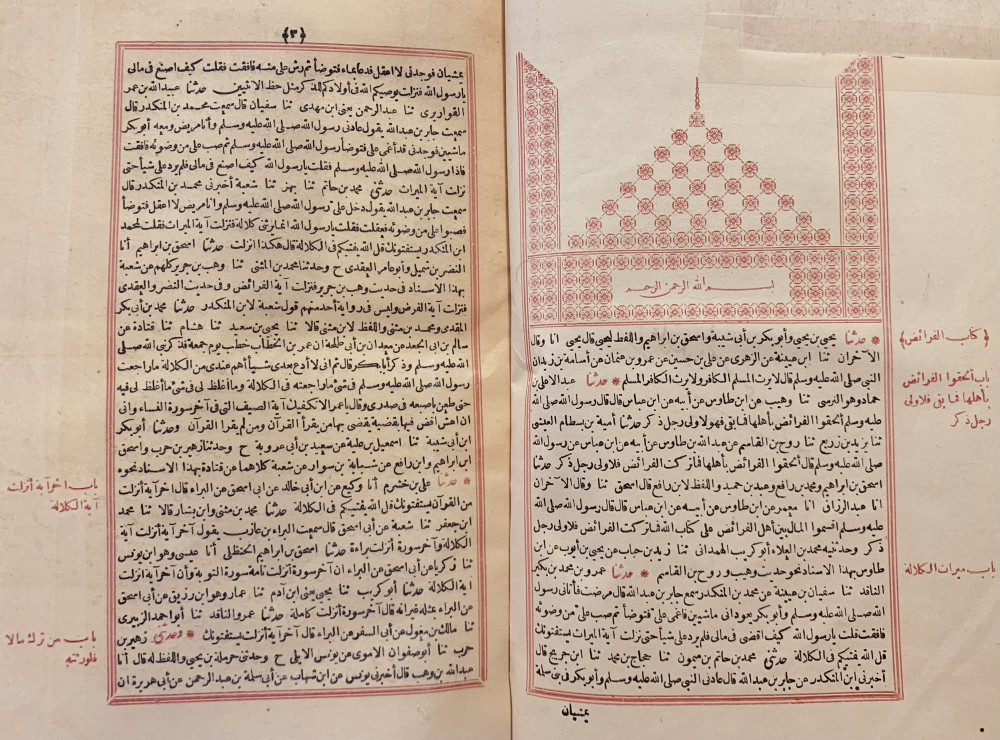 بسم الله الرحمن الرحيم
﴿ كتاب الفرائض ﴾
* حدثنا يحيى بن يحيى وأبو بكر بن أبى شيبة واسحق بن ابراهيم واللفظ ليحيى قال يحيى انا وقال
الآخران ثنا ابن عيينة عن الزهرى عن على بن حسين عن عمرو بن عثمان عن أسامة بن زيد ان
باب ألحقوا الفرائض بأهلها فما بقى فلاولى رجل ذكر
النبى صلى الله عليه وسلم قال لا يرث المسلم الكافر ولا يرث الكافر المسلم * حدثنا عبد الاعلى بن
حماد وهو النرسى ثنا وهيب عن ابن طاوس عن أبيه عن ابن عباس قال قال رسول الله صلى الله
عليه وسلم ألحقوا الفرائض بأهلها فما بقى فهو لاولى رجل ذكر حدثنا أمية بن بسطام العيشى
ثنا يزيد بن زريع ثنا روح بن القاسم عن عبد الله بن طاوس عن أبيه عن ابن عباس عن رسول الله
صلى الله عليه وسلم قال ألحقوا الفرائض بأهلها فما تركت الفرائض فلاولى رجل ذكر حدثنا
اسحق بن ابراهيم ومحمد بن رافع وعبد بن حميد واللفظ لابن رافع قال اسحق ثنا وقال الآخران
انا عبد الرزاق انا معمر عن ابن طاوس عن أبيه عن ابن عباس قال قال رسول الله صلى الله
عليه وسلم اقسموا المال بين أهل الفرائض على كتاب الله فما تركت الفرائض فلاولى رجل
ذكر وحدثنيه محمد بن العلاء أبو كريب الهمدانى ثنا زيد بن حباب عن يحيى بن أيوب عن ابن
باب ميراث الكلالة
طاوس بهذا الاسناد نحو حديث وهيب وروح بن القاسم * حدثنا عمرو بن محمد بن بكير
الناقد ثنا سفيان بن عيينة عن محمد بن المنكدر سمع جابر بن عبد الله قال مرضت فأتانى رسول
الله صلى الله عليه وسلم وأبو بكر يعودانى ماشيين فاغمى على فتوضأ ثم صب على من وضوئه
فافقت قلت يا رسول الله كيف اقضى فى مالى فلم يرد على شيأ حتى نزلت آية الميراث يستفتونك
قل الله يفتيكم فى الكلالة حدثنى محمد بن حاتم بن ميمون ثنا حجاج بن محمد ثنا ابن جريج قال
أخبرنى ابن المنكدر عن جابر بن عبد الله قال عادنى النبى صلى الله عليه وسلم وأبو بكر فى بنى سلمة
يمشيان
﴿٣﴾
يمشيان فوجدنى لا اعقل فدعا بماء فتوضأ ثم رش على منه فافقت فقلت كيف اصنع فى مالى
يا رسول الله فنزلت يوصيكم الله فى أولادكم للذكر مثل حظ الانثيين حدثنا عبيد الله بن عمر
القواريرى ثنا عبد الرحمن يعنى ابن مهدى ثنا سفيان قال سمعت محمد بن المنكدر قال
سمعت جابر بن عبد الله يقول عادنى رسول الله صلى الله عليه وسلم وأنا مريض ومعه أبو بكر
ماشيين فوجدنى قد أغمى على فتوضأ رسول الله صلى الله عليه وسلم ثم صب على من وضوئه فافقت
فاذا رسول الله صلى الله عليه وسلم فقلت يا رسول الله كيف اصنع فى مالى فلم يرد على شيأ حتى
نزلت آية الميراث حدثنى محمد بن حاتم ثنا بهز ثنا شعبة أخبرنى محمد بن المنكدر قال
سمعت جابر بن عبد الله يقول دخل على رسول الله صلى الله عليه وسلم وانا مريض لا اعقل فتوضأ
فصبوا على من وضوئه فعقلت فقلت يا رسول الله انما يرثنى كلالة فنزلت آية الميراث فقلت لمحمد
ابن المنكدر يستفتونك قل الله يفتيكم فى الكلالة قال هكذا انزلت حدثنا اسحق بن ابراهيم أنا
النضر بن شميل وأبو عامر العقدى ح وحدثنا محمد بن المثنى ثنا وهب بن جرير كلهم عن شعبة
بهذا الاسناد فى حديث وهب بن جرير فنزلت آية الفرائض وفى حديث النضر والعقدى
فنزلت آية الفرض وليس فى رواية أحد منهم قول شعبة لابن المنكدر حدثنا محمد بن أبى بكر
المقدمى ومحمد بن مثنى واللفظ لابن مثنى قالا ثنا يحيى بن سعيد ثنا هشام ثنا قتادة عن
سالم بن ابى الجعد عن معدان بن أبى طلحة ان عمر بن الخطاب خطب يوم جمعة فذكر نبى الله صلى
الله عليه وسلم وذكر أبا بكر قال ثم انى لا أدع بعدى شيأ أهم عندى من الكلالة ما راجعت
رسول الله صلى الله عليه وسلم فى شىء ما راجعته فى الكلالة وما أغلظ لى فى شىء ما أغلظ لى فيه
حتى طعن باصبعه فى صدرى وقال يا عمر ألا تكفيك آية الصيف التى فى آخر سورة النساء وانى
ان اعش اقض فيها بقضية يقضى بها من يقرأ القرآن ومن لم يقرأ القرآن وحدثنا أبو بكر
ابن أبى شيبة ثنا اسمعيل بن علية عن سعيد بن أبى عروبة ح وحدثنا زهير بن حرب واسحق
ابن ابراهيم وابن رافع عن شبابة بن سوار عن شعبة كلاهما عن قتادة بهذا الاسناد نحوه
باب آخر آية أنزلت آية الكلالة
* حدثنا على بن خشرم أنا وكيع عن ابن أبى خالد عن ابى اسحق عن البراء قال آخر آية أنزلت
من القرآن يستفتونك قل الله يفتيكم فى الكلالة حدثنا محمد بن مثنى وابن بشار قالا ثنا محمد
ابن جعفر ثنا شعبة عن أبى اسحق قال سمعت البراء بن عازب يقول آخر آية أنزلت آية
الكلالة وآخر سورة أنزلت براءة حدثنا اسحق بن ابراهيم الحنظلى أنا عيسى وهو ابن يونس
ثنا زكريا عن أبى اسحق عن البراء ان آخر سورة أنزلت تامة سورة التوبة وأن آخر آية أنزلت
آية الكلالة حدثنا أبو كريب ثنا يحيى يعنى ابن آدم ثنا عمار وهو ابن رزيق عن أبى اسحق
عن البراء بمثله غير انه قال آخر سورة أنزلت كاملة حدثنا عمرو الناقد ثنا أبو احمد الزبيرى
باب من ترك مالا فلورثته
ثنا مالك بن مغول عن أبى السفر عن البراء قال آخر آية أنزلت يستفتونك * وحدثنى زهير بن
حرب ثنا أبو صفوان الاموى عن يونس الايلى ح وحدثنى حرملة بن يحيى واللفظ له قال أنا
عبد الله بن وهب قال أخبرنى يونس عن ابن شهاب عن أبى سلمة بن عبد الرحمن عن أبى هريرة ان